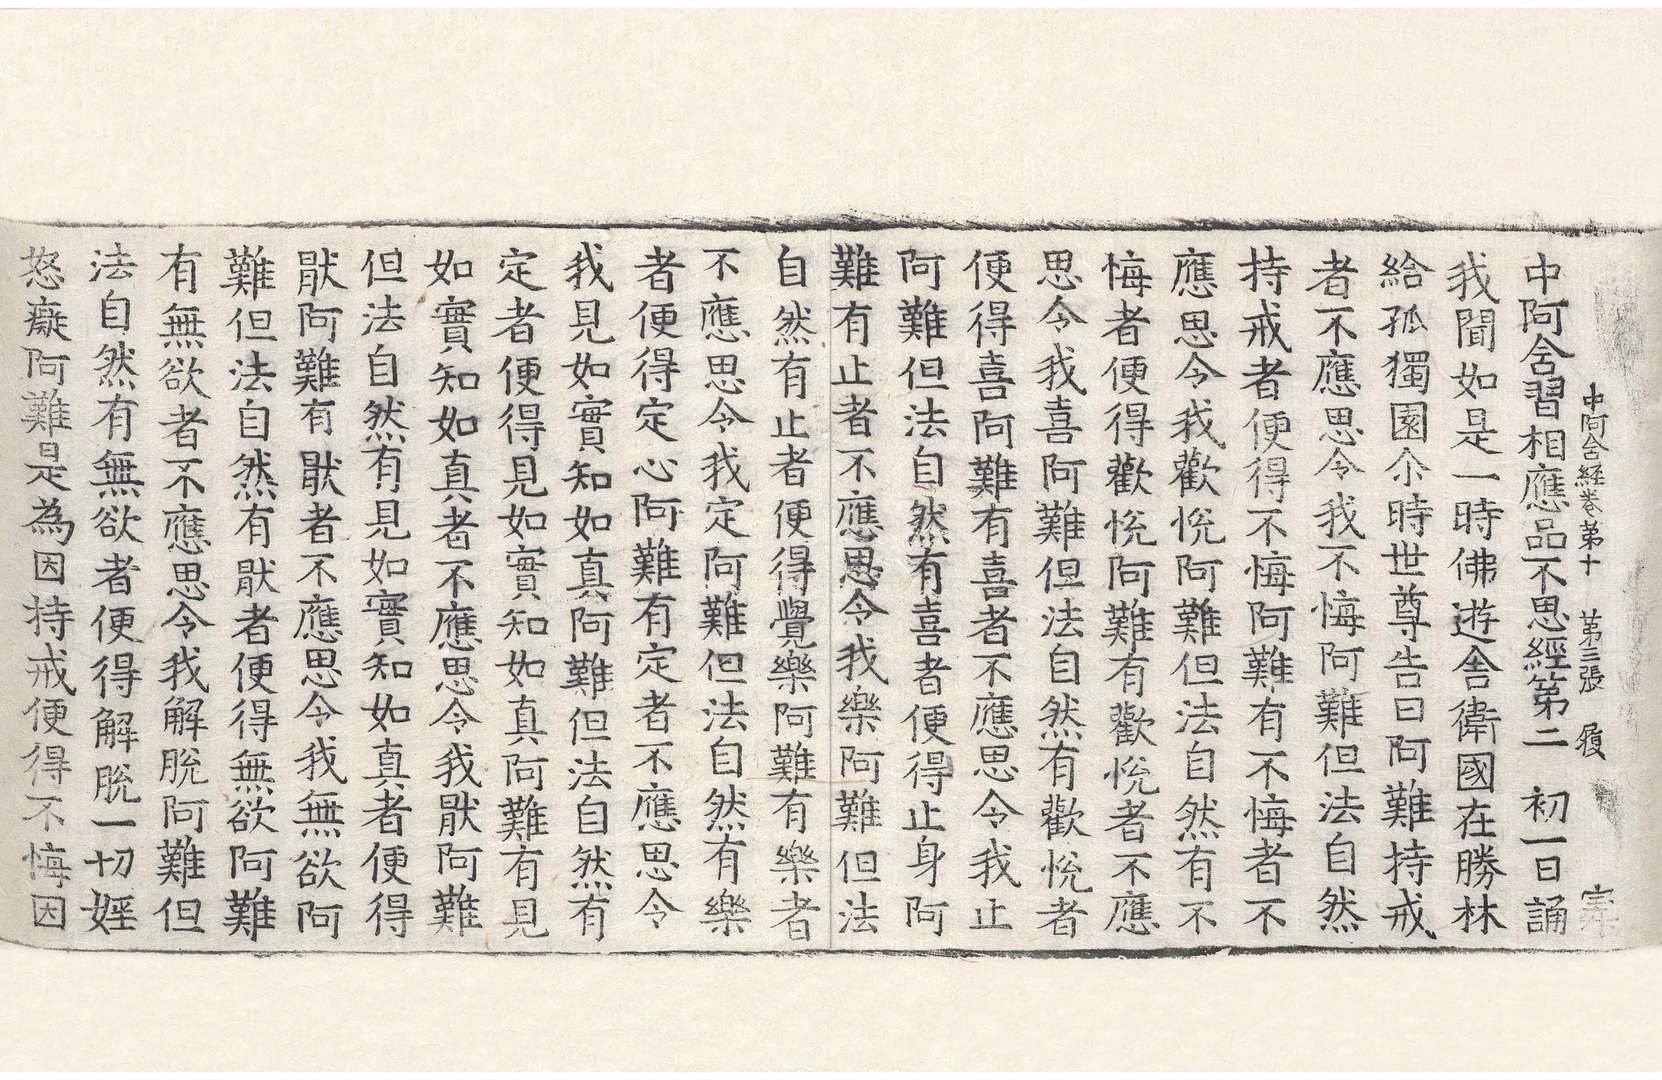 中阿含経卷第十 第三張 履
中阿含習相應品不思經第二 初一日誦
我聞如是一時佛遊舍衛國在勝林
給孤獨園尒時世尊告曰阿難持戒
者不應思令我不悔阿難但法自然
持戒者便得不悔阿難有不悔者不
應思令我歡悅阿難但法自然有不
悔者便得歡悅阿難有歡悅者不應
思令我喜阿難但法自然有歡悅者
便得喜阿難有喜者不應思令我止
阿難但法自然有喜者便得止身阿
難有止者不應思令我樂阿難但法
自然有止者便得覺樂阿難有樂者
不應思令我定阿難但法自然有樂
者便得定心阿難有定者不應思令
我見如實知如真阿難但法自然有
定者便得見如實知如真阿難有見
如實知如真者不應思令我猒阿難
但法自然有見如實知如真者便得
猒阿難有猒者不應思令我無欲阿
難但法自然有猒者便得無欲阿難
有無欲者不應思令我解脫阿難但
法自然有無欲者便得解脫一切婬
怒癡阿難是為因持戒便得不悔因